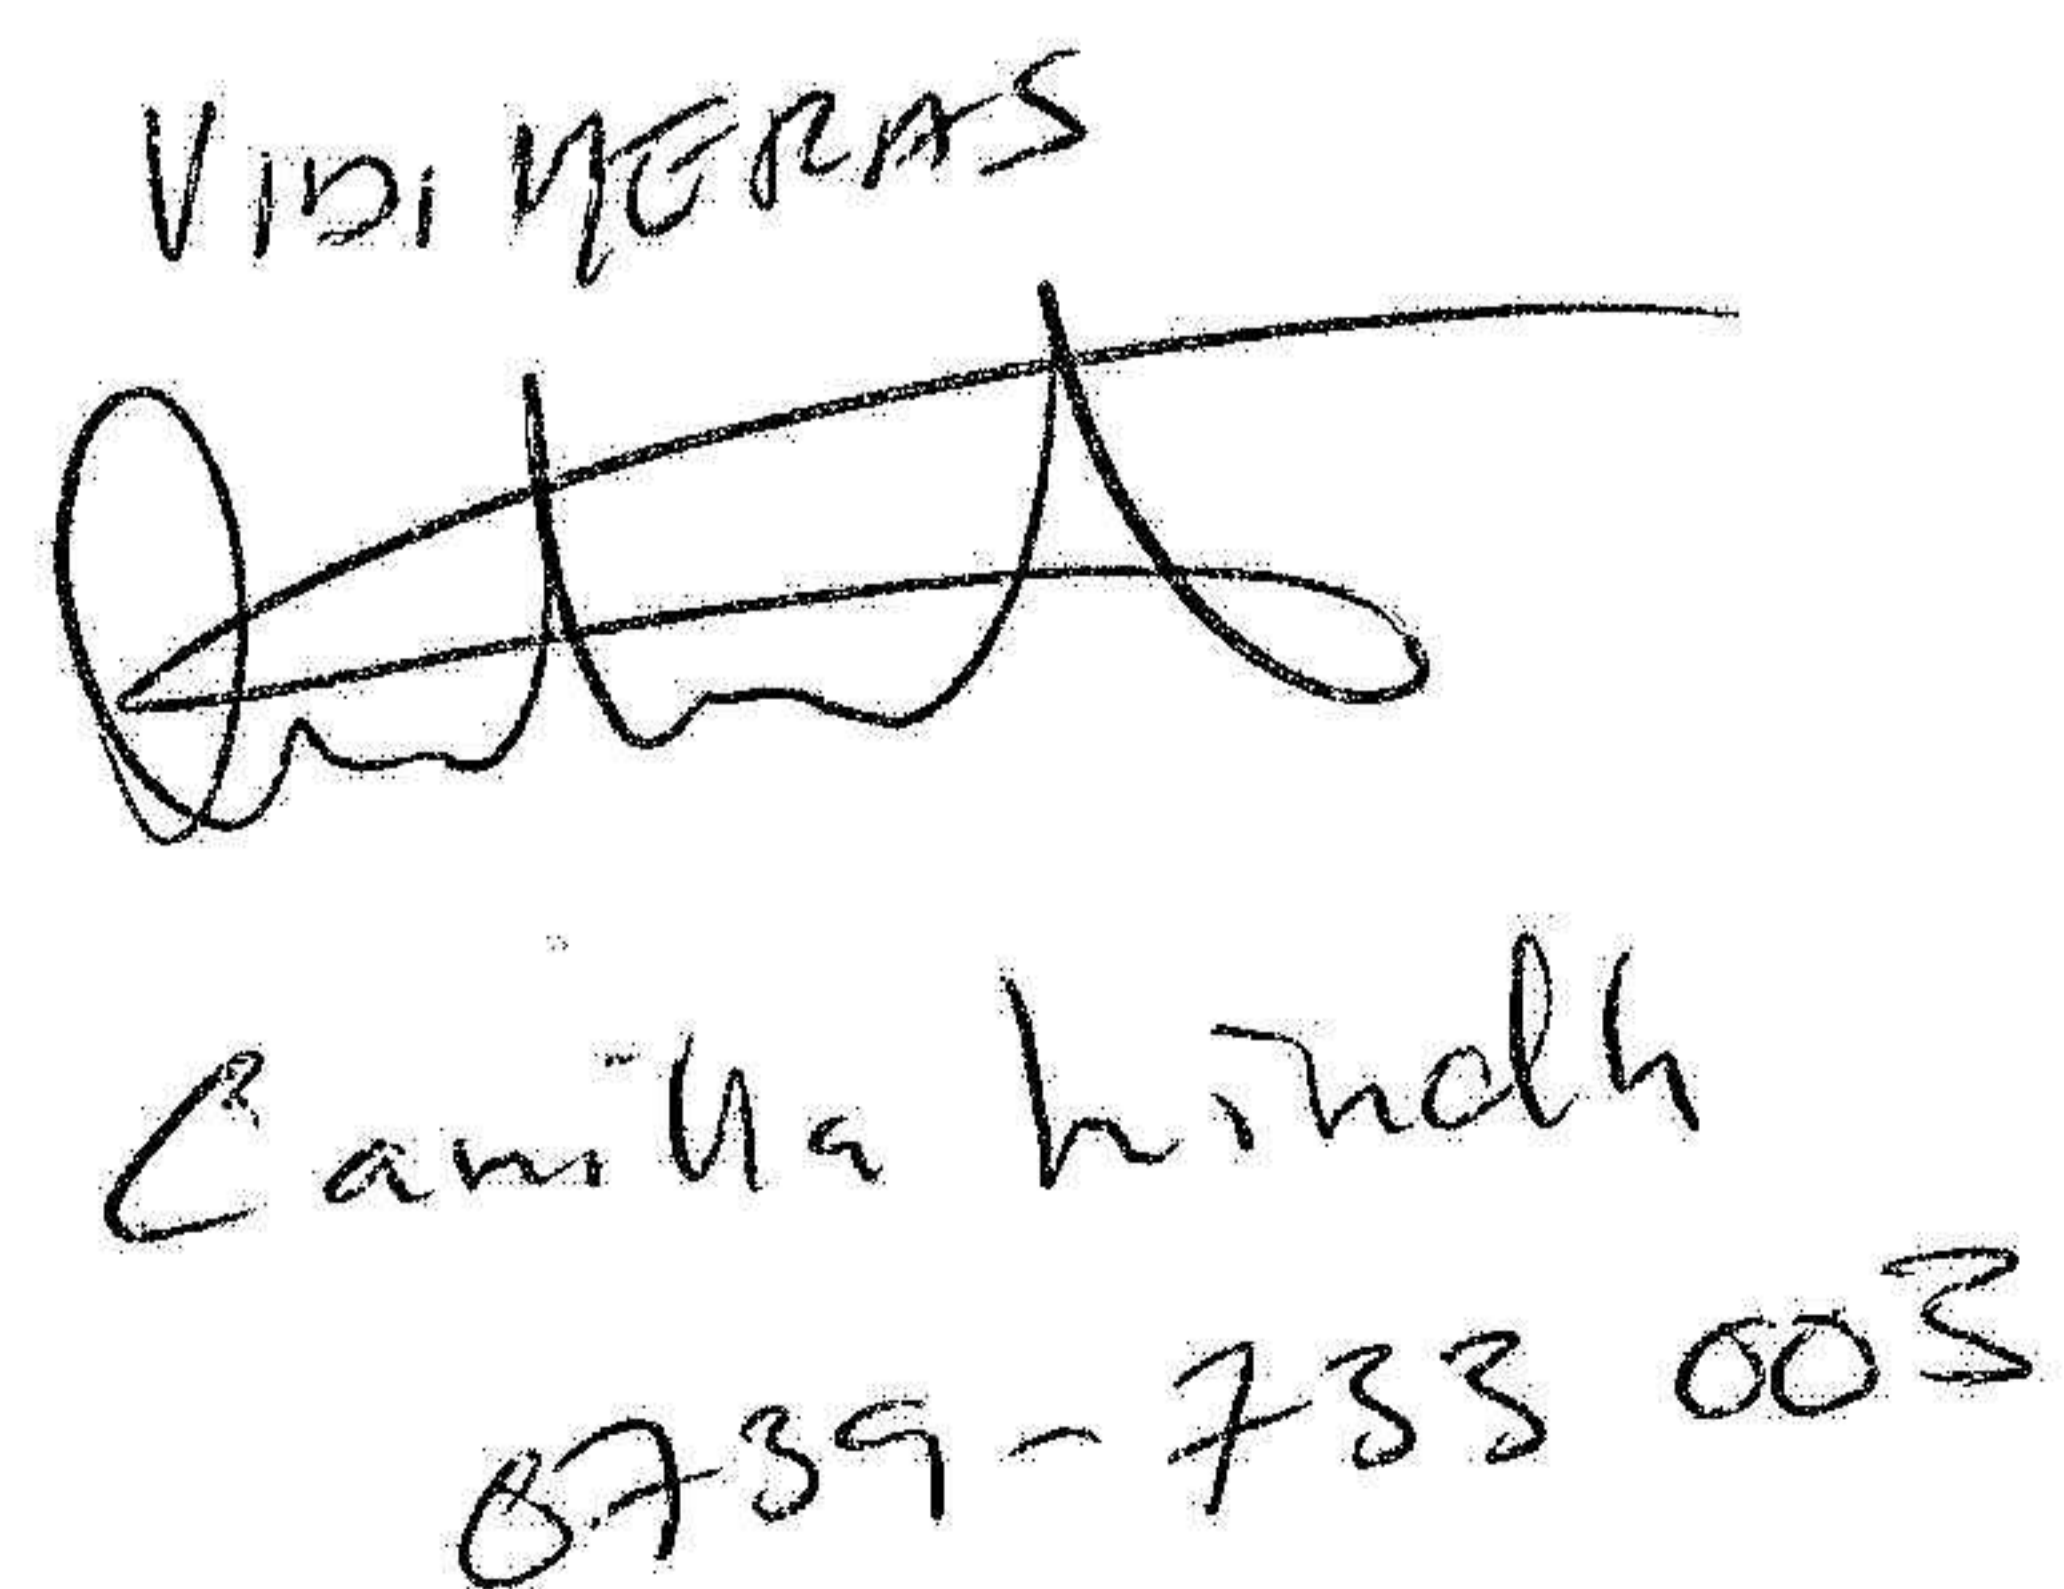 VIDIMERAS
Camilla Lindh
0739-733 003